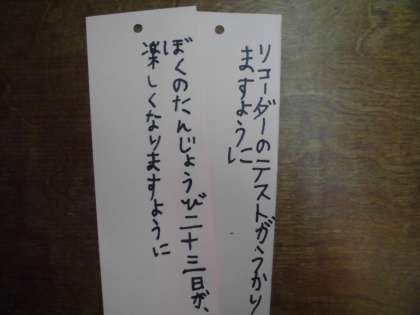 リコーダーのテストがうかり
ますように
ぼくのたんじょうび二十三日が、
楽しくなりますように